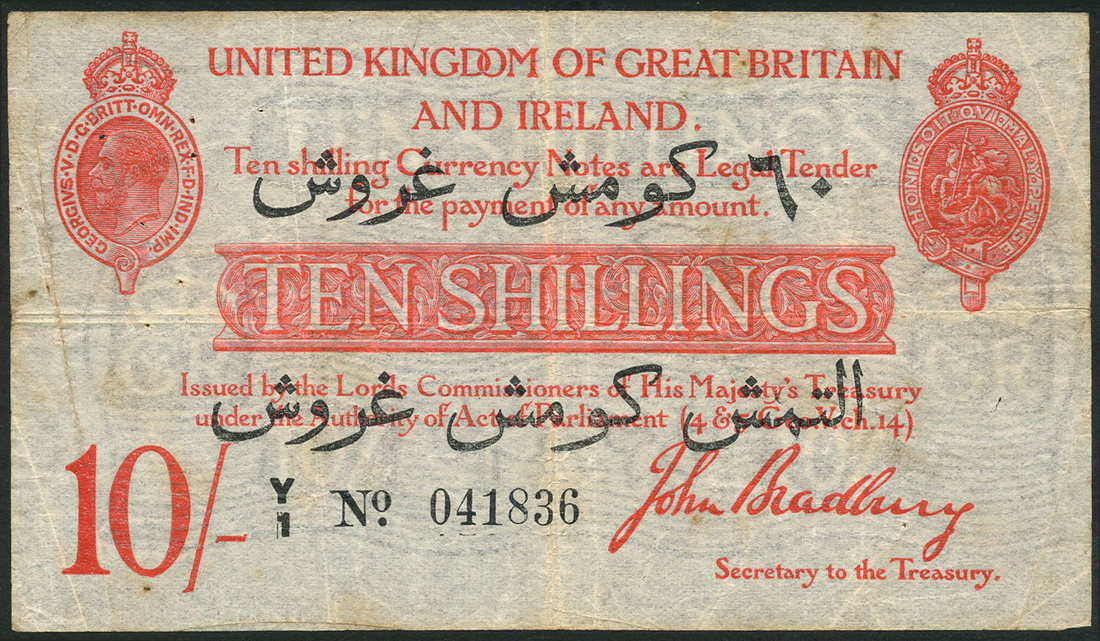 UNITED KINGDOM OF GREAT BRITAIN
AND IRELAND.
GEORGIVS·V·D·G·BRITT·OMN·REX·F·D·IND·IMP·
HONI·SOIT·QVI·MAL·Y·PENSE
Ten shilling Currency Notes are Legal Tender
٦٠ كومش غروش
for the payment of any amount.
TEN SHILLINGS
Issued by the Lords Commissioners of His Majesty's Treasury
التمش كومش غروش
under the Authority of Act of Parliament (4 & 5 Geo.V.ch.14)
10/-
Y/1 Nº. 041836
John Bradbury
Secretary to the Treasury.